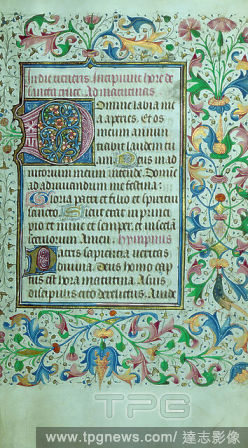 Indie veneris Incipiunt hore de
sancta cruce Ad matutinas
Domine labia me
a aperies. Et os
meum annun
ciabit laudem tu
am. Deus in ad
iutorium meum intende. Domine
ad adiuvandum me festina:
Gloria patri et filio et spiritui
sancto. Sicut erat in princi
pio et nunc et semper. et in secula
seculorum Amen. hympnus
Patris sapientia veritas
divina. Deus homo cap
tus est hora matutina. A suis
discipulis cito derelictus. A iude
TPG
www.tpgnews.com / 達志影像